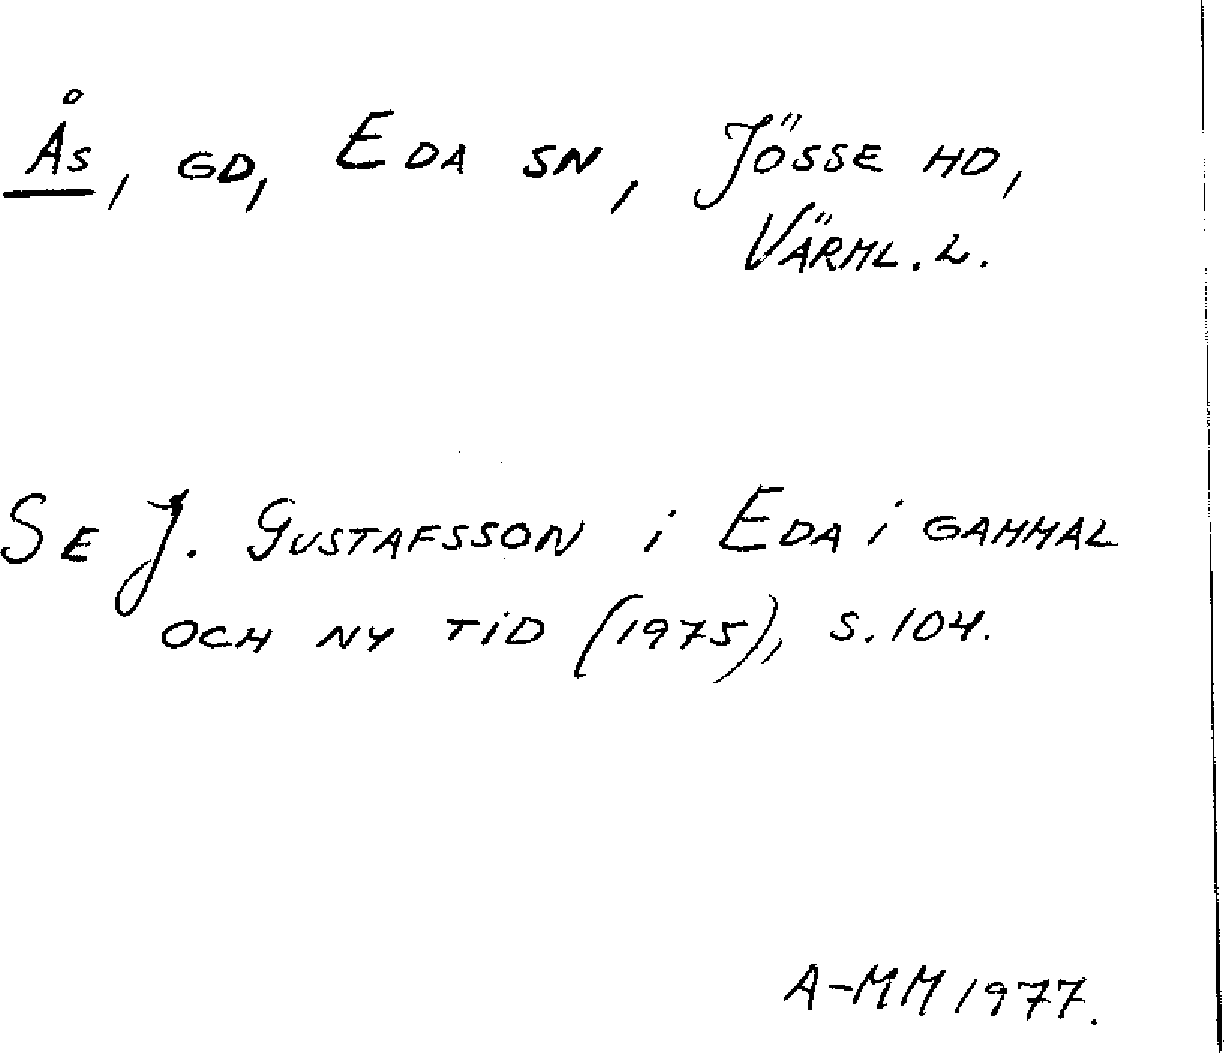 Ås, GD, EDA SN, JÖSSE HD,
VÄRML. L.
SE J. GUSTAFSSON i EDA i GAMMAL
OCH NY TiD (1975), S. 104.
A-MM 1977.